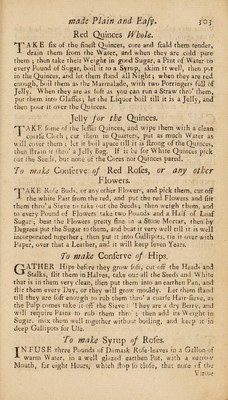 made Plain and Easy. 303
Red Quinces Whole.
TAKE six of the finest Quinces, core and scald them tender,
drain them from the Water, and when they are cold pare
them; then take their Weight in good Sugar, a Pint of Water to
every Pound of Sugar, boil it to a Syrup, skim it well, then put
in the Quinces, and let them stand all Night; when they are red
enough, boil them as the Marmalade, with two Porringers full of
Jelly. When they are as soft as you can run a Straw thro' them,
put them into Glasses; let the Liquor boil till it is a Jelly, and
then pour it over the Quinces.
Jelly for the Quinces.
TAKE some of the lesser Quinces, and wipe them with a clean
coarse Cloth; cut them in Quarters, put as much Water as
will cover them; let it boil apace till it is strong of the Quinces,
then strain it thro' a Jelly Bag. If it be for White Quinces pick
out the Seeds, but none of the Cores nor Quinces pared.
To make Conserve of Red Roses, or any other
Flowers.
TAKE Rose Buds, or any other Flowers, and pick them, cut off
the white Part from the red, and put the red Flowers and sift
them thro' a Sieve to take out the Seeds; then weigh them, and
to every Pound of Flowers take two Pounds and a Half of Loaf
Sugar; beat the Flowers pretty fine in a Stone Mortar, then by
Degrees put the Sugar to them, and beat it very well till it is well
incorporated together; then put it into Gallipots, tie it over with
Paper, over that a Leather, and it will keep seven Years.
To make Conserve of Hips.
GATHER Hips before they grow soft, cut off the Heads and
Stalks, slit them in Halves, take out all the Seeds and White
that is in them very clean, then put them into an earthen Pan, and
stir them every Day, or they will grow mouldy. Let them stand
till they are soft enough to rub them thro' a coarse Hair-Sieve, as
the Pulp comes take it off the Sieve: They are a dry Berry, and
will require Pains to rub them thro'; then add its Weight in
Sugar, mix them well together without boiling, and keep it in
deep Gallipots for Use.
To make Syrup of Roses.
INFUSE three Pounds of Damask Rose-leaves in a Gallon of
warm Water, in a well glazed earthen Pot, with a narrow
Mouth, for eight Hours, which stop so close, that none of the
Virtue